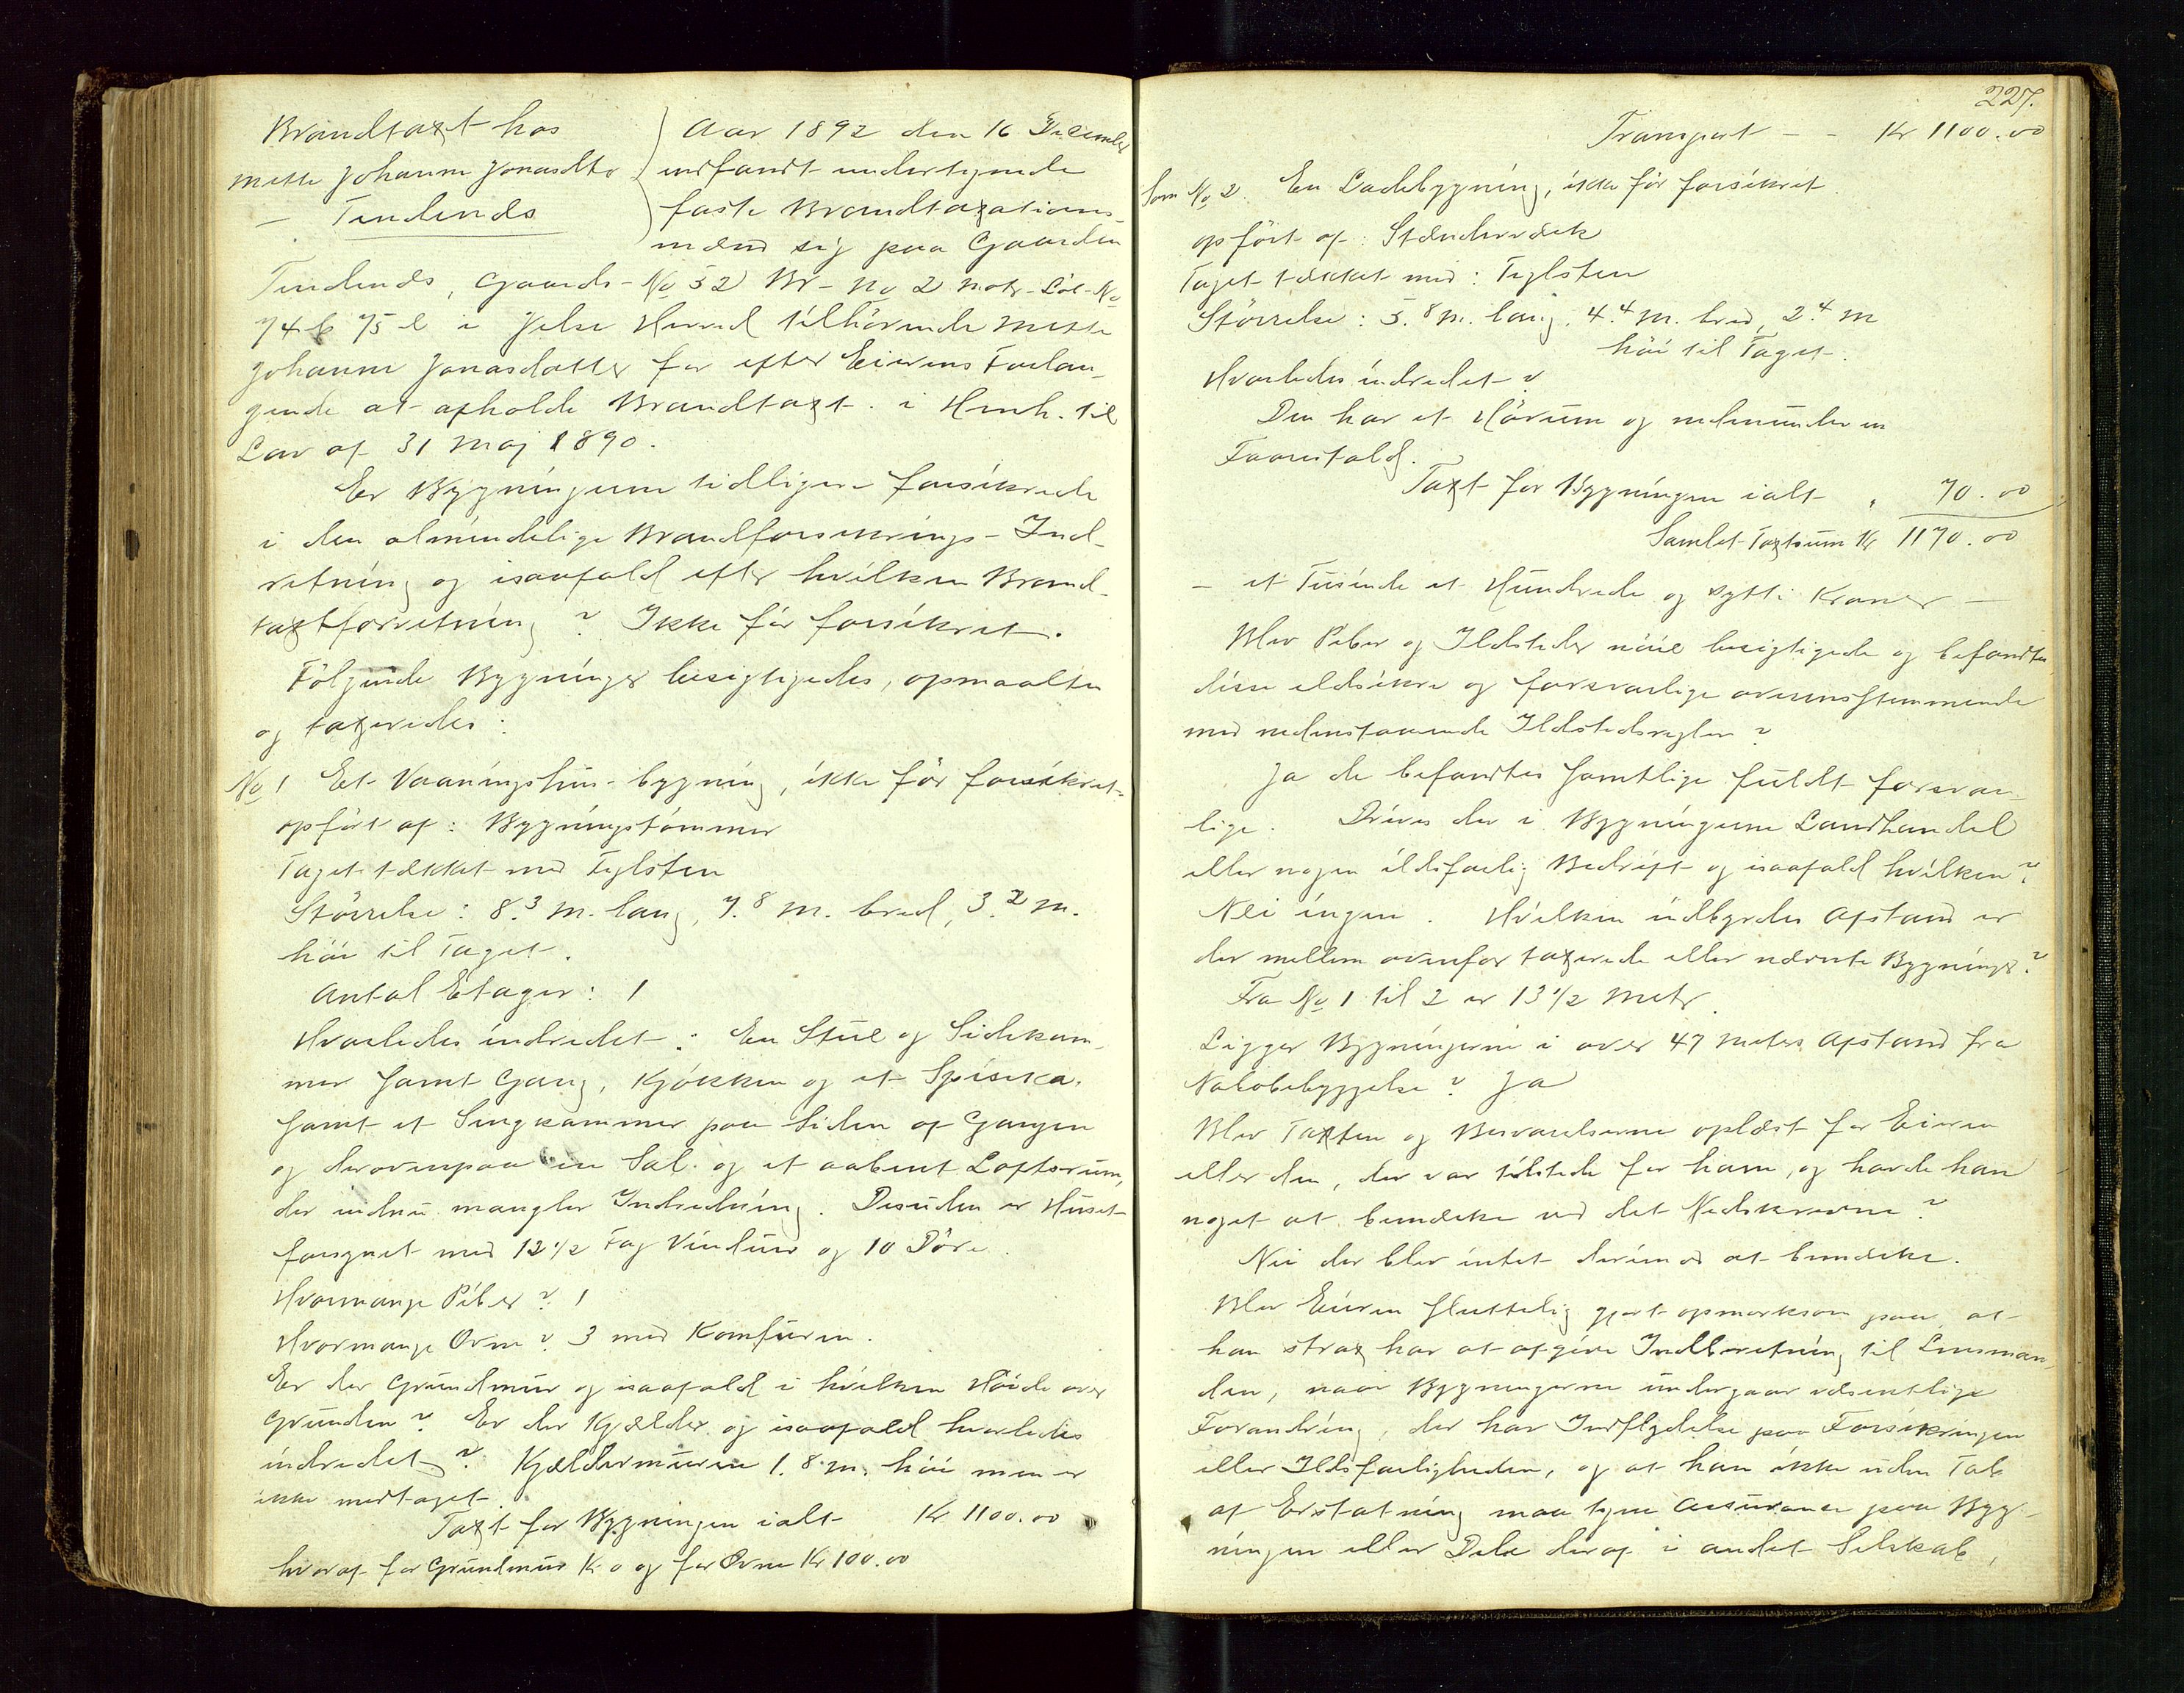 Brandtaxt hos
Mette Johanne Jonasdtr
— Tindenæs
Aar 1892 den 16 December
indfandt undertegnede
faste Brandtaxations-
mænd sig paa Gaarden
Tindenæs, Gaards-No 52 Br-No 2 Matr-Löb-No
74 b 75 b i Jelse Herred tilhörende Mette
Johanne Jonasdatter for efter Eierens Forlan-
gende at afholde Brandtaxt i Henh. til
Lov af 31 Maj 1890.
Er Bygningerne tidligere forsikrede
i den almindelige Brandforsikrings-Ind-
retning og isaafald efter hvilken Brand-
taxtforretning? Ikke för forsikret.
Fölgende Bygninger besigtigedes, opmaaltes
og taxeredes:
No 1 Et Vaaningshus-bygning, ikke för forsikret
opfört af: Bygningstömmer
Taget tækket med Teglsten
Störrelse: 8.3 m. lang, 7.8 m. bred, 3.2 m.
höi til Taget.
Antal Etager: 1
Hvorledes indredet: En Stue og Sidekam-
mer samt Gang, Kjökken og et Spiseka.
samt et Sengkammer paa Siden af Gangen
og derovenpaa en Sal og et aabent Loftsrum,
der endnu mangler Indredning. Desuden er Huset
forsynet med 12 1/2 Fag Vinduer og 10 Döre.
Hvormange Piber? 1
Hvormange Ovne? 3 med Komfuren.
Er der Grundmur og isaafald i hvilken Höide over
Grunden? Er der Kjælder og isaafald hvorledes
indredet? Kjældermuren 1.8 m. höi men er
ikke medtaget.
Taxt for Bygningen ialt Kr 1100.00
hvoraf for Grundmur Kr 0 og for Ovne Kr 100.00
227.
Transport - - Kr 1100.00
Som No 2. En Ladebygning, ikke för forsikret.
opfört af: Stænderværk
Taget tækket med: Teglsten
Störrelse: 5.8 m. lang. 4.4 m. bred, 2.4 m
höi til Taget.
Hvorledes indredet?
Den har et Hörum og nedenunder en
Faarestald.
Taxt for Bygningen ialt " 70.00
Samlet Taxtsum Kr 1170.00
— et Tusinde et Hundrede og sytti Kroner —
Blev Piber og Ildsteder nöie besigtigede og befandtes
disse ildsikre og forsvarlige overensstemmende
med nedenstaaende Ildstedsregler?
Ja de befandtes samtlige fuldt forsvar-
lige. Drives der i Bygningerne Landhandel
eller nogen ildsfarlig Bedrift og isaafald hvilken?
Nei ingen. Hvilken indbyrdes Afstand er
der mellem ovenfor taxerede eller nævnte Bygninger?
Fra No 1 til 2 er 13 1/2 Metr.
Ligger Bygningerne i over 47 Meters Afstand fra
Nabobebyggelse? Ja
Blev Taxten og Besvarelserne oplæst for Eieren
eller den, der var tilstede for ham, og havde han
noget at bemærke ved det Nedskrevne?
Nei der blev intet derimod at bemærke.
Blev Eieren sluttelig gjort opmerksom paa, at
han strax har at afgive Indberetning til Lensman-
den, naar Bygningerne undergaar væsentlige
Forandring, der har Indflydelse paa Forsikringen
eller Ildsfarligheden, og at han ikke uden Tab
af Erstatning maa tegne Assurance paa Byg-
ningen eller Dele deraf i andet Selskab,